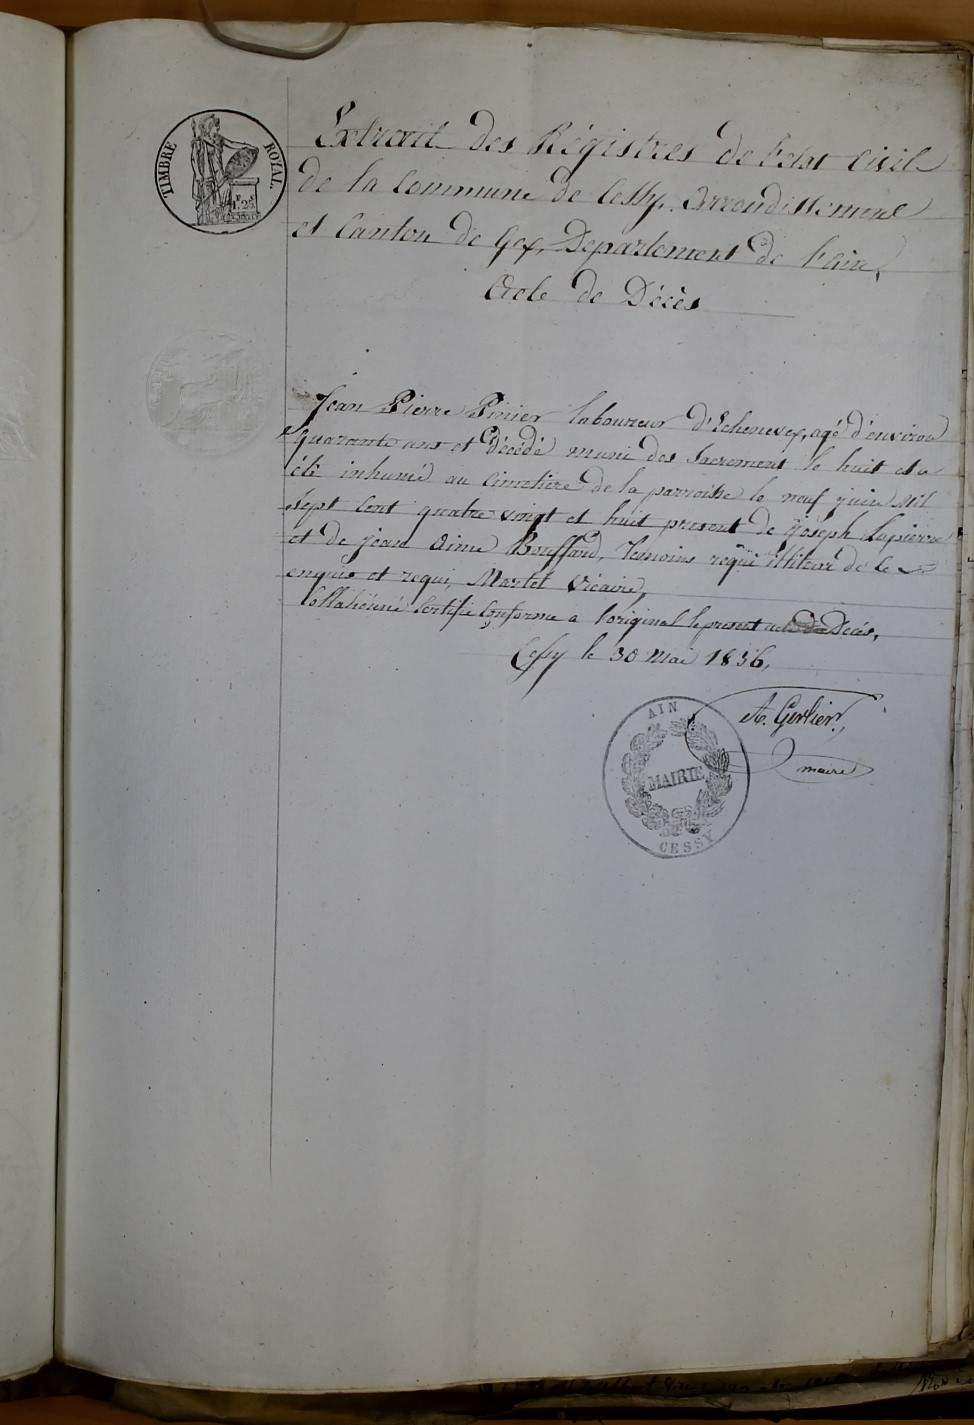 TIMBRE ROYAL.
1F 25c
Extrait des Régistres de l'etat Civil
de la Commune de Cessy. Arrondissement
et Canton de Gex, Departement de l'ain,
Acte de Décès
Jean Pierre Pinier laboureur d'Echenevex, agé d'environ
quarante ans et décédé muni des Sacrement le huit et a
été inhumé au Cimetière de la parroisse le neuf juin Mil
Sept Cent quatre vingt et huit present de Joseph Lapierre
et de jean aimé Bouffard, Temoins requi illiteré de ce
enquis et requi, Martet Vicaire,
Collationné Certifié Conforme a l'original le present acte de Décés,
Cessy le 30 Mai 1836,
A. Gerlier,
maire
AIN
MAIRIE
DE
CESSY